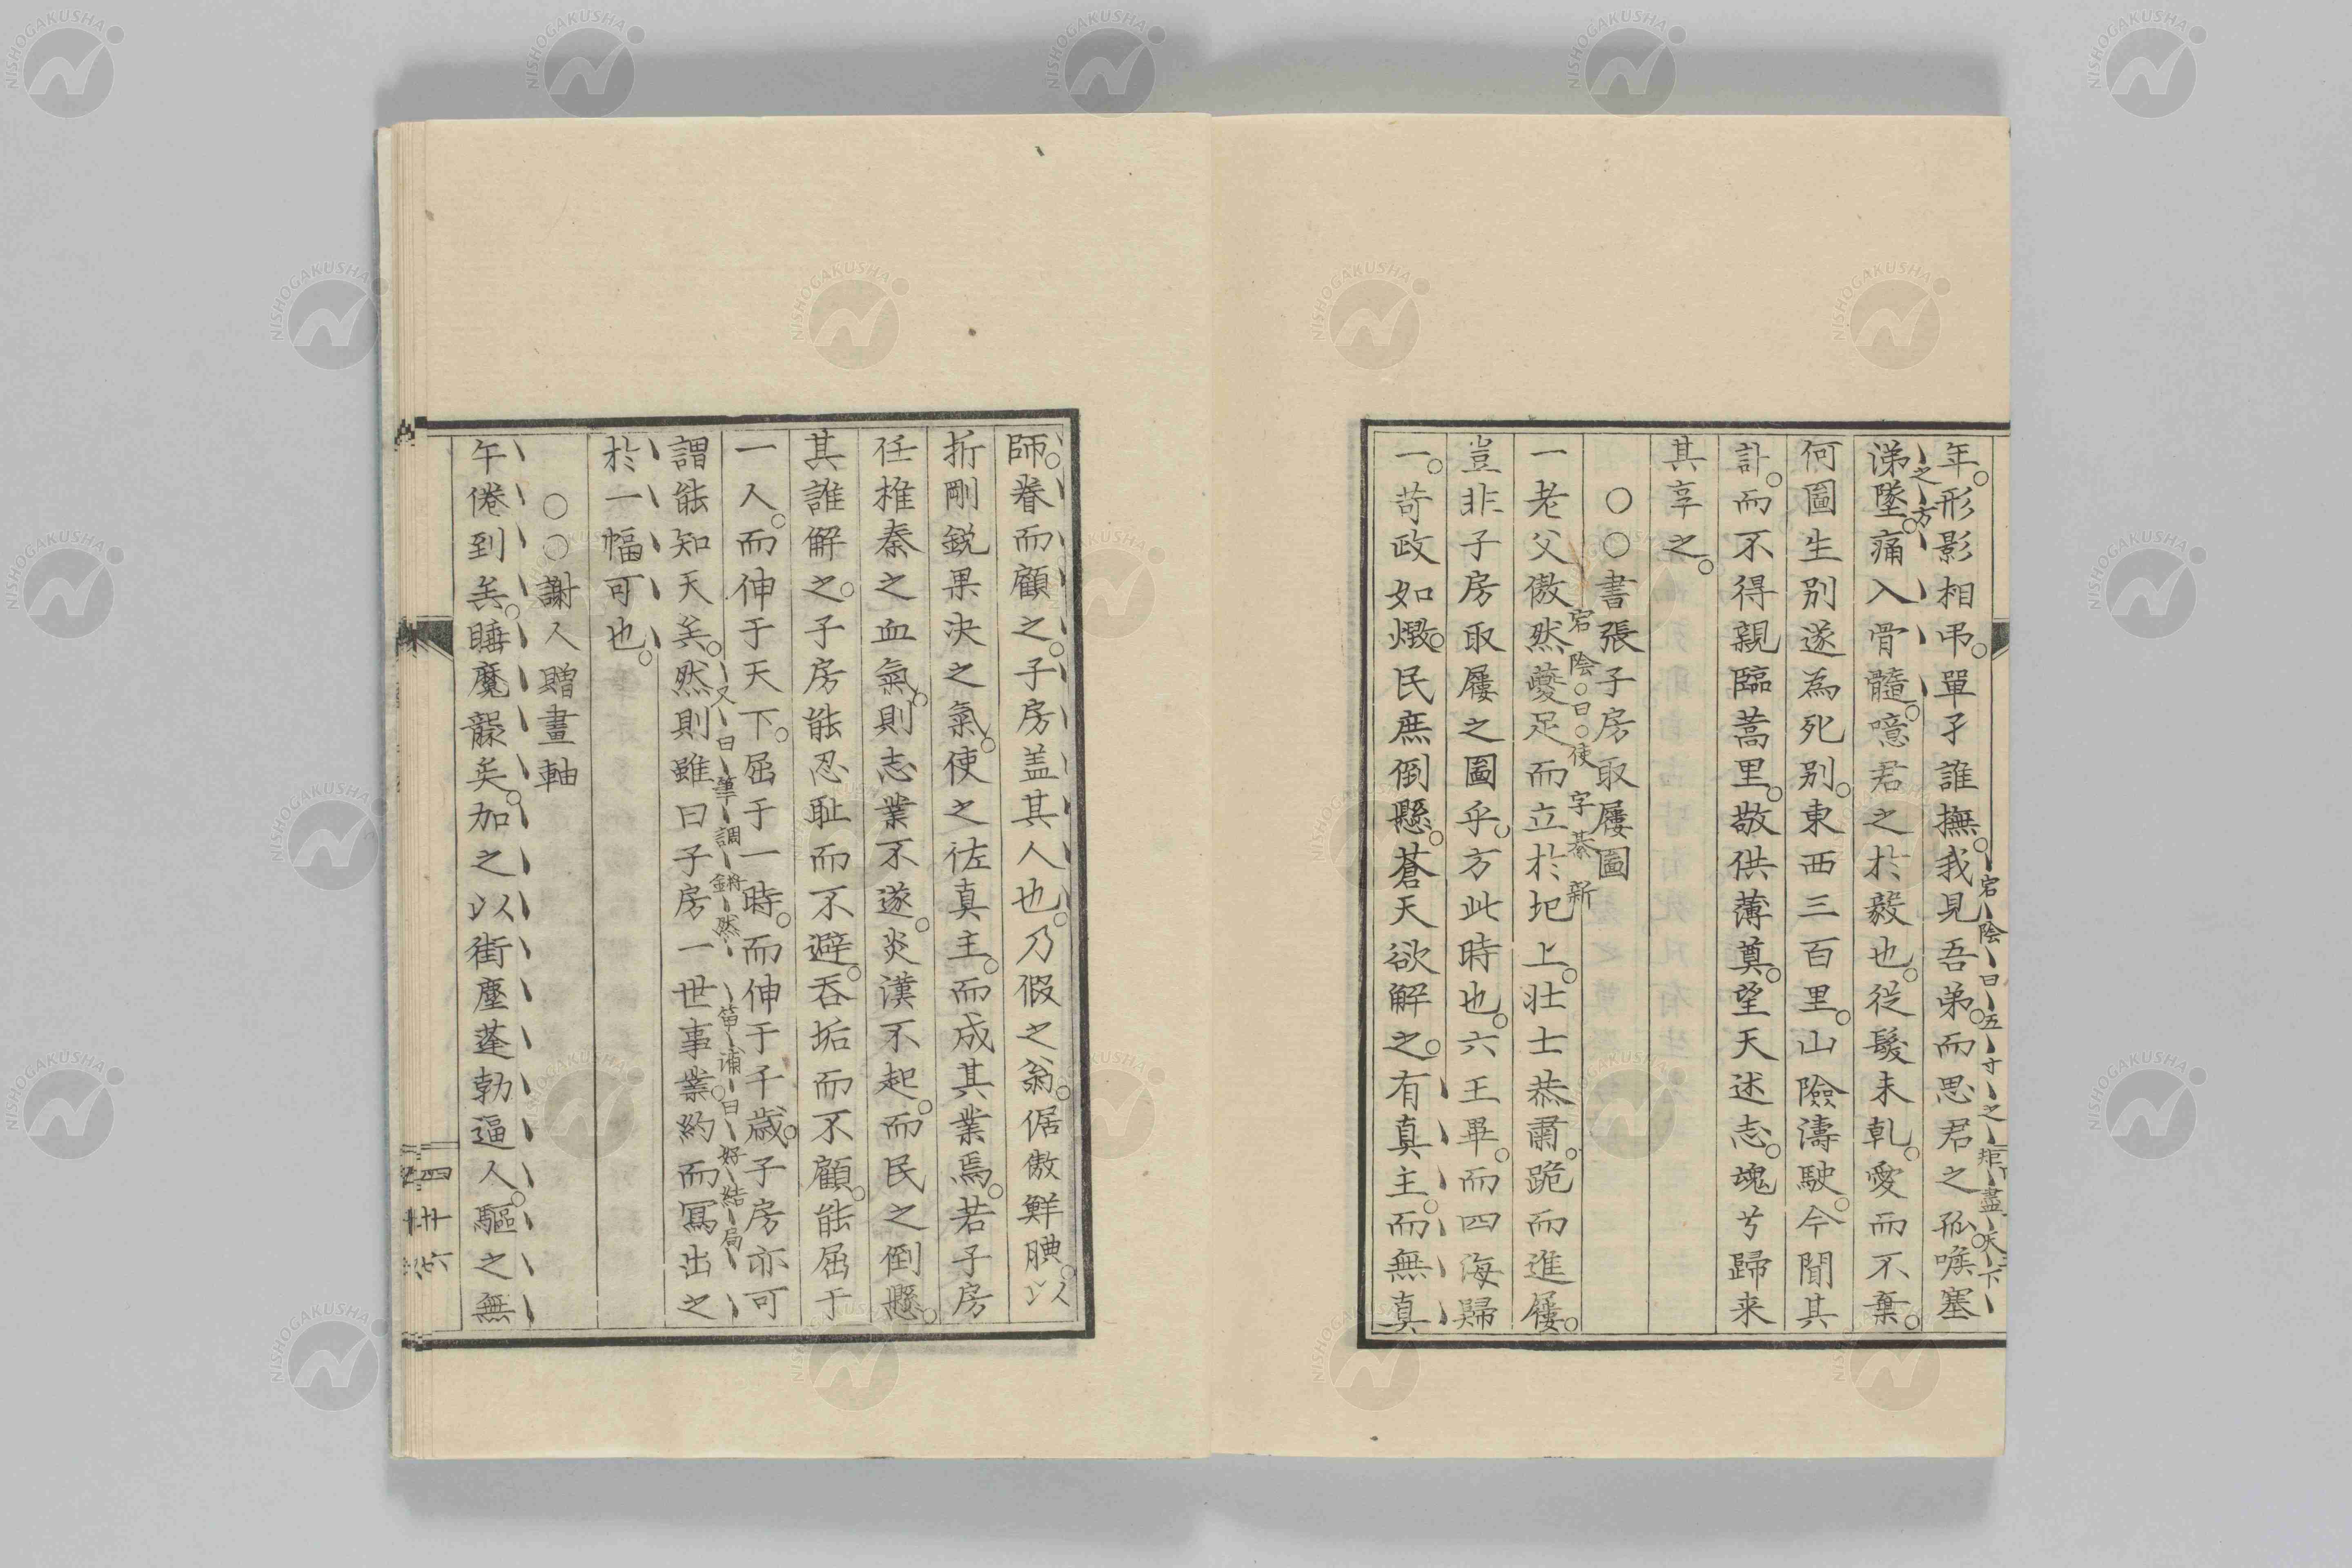 年。形影相弔。單孑誰撫。我見吾弟。而思君之孤。喉塞
宕陰曰五寸之矩盡天下
之方
涕墜。痛入骨髓。噫君之於毅也。從髮未乾。愛而不棄。
何圖生別遂為死別。東西三百里。山險濤駛。今聞其
訃。而不得親臨蒿里。敬供薄奠。望天述志。魂兮歸来
其享之。
○○書張子房取屨圖
宕陰○曰○使字綦新
一老父傲然夔足而立於圯上。壯士恭肅。跪而進屨。
豈非子房取屨之圖乎。方此時也。六王畢。而四海歸
一。苛政如燬。民庶倒懸。蒼天欲解之。有真主。而無真
師。眷而顧之。子房盖其人也。乃假之翁。倨傲鮮腆。以
折剛鋭果決之氣。使之佐真主。而成其業焉。若子房
任椎秦之血氣。則志業不遂。炎漢不起。而民之倒懸。
其誰解之。子房能忍耻而不避。呑垢而不顧。能屈于
一人。而伸于天下。屈于一時。而伸于千歳。子房亦可
又曰筆調鏘然
笛浦曰好結局
謂能知天矣。然則雖曰子房一世事業。約而冩出之
於一幅可也。
○○謝人贈畫軸
午倦到矣。睡魔躁矣。加之以街塵蓬勃逼人。驅之無
四
廿六
NISHOGAKUSHA